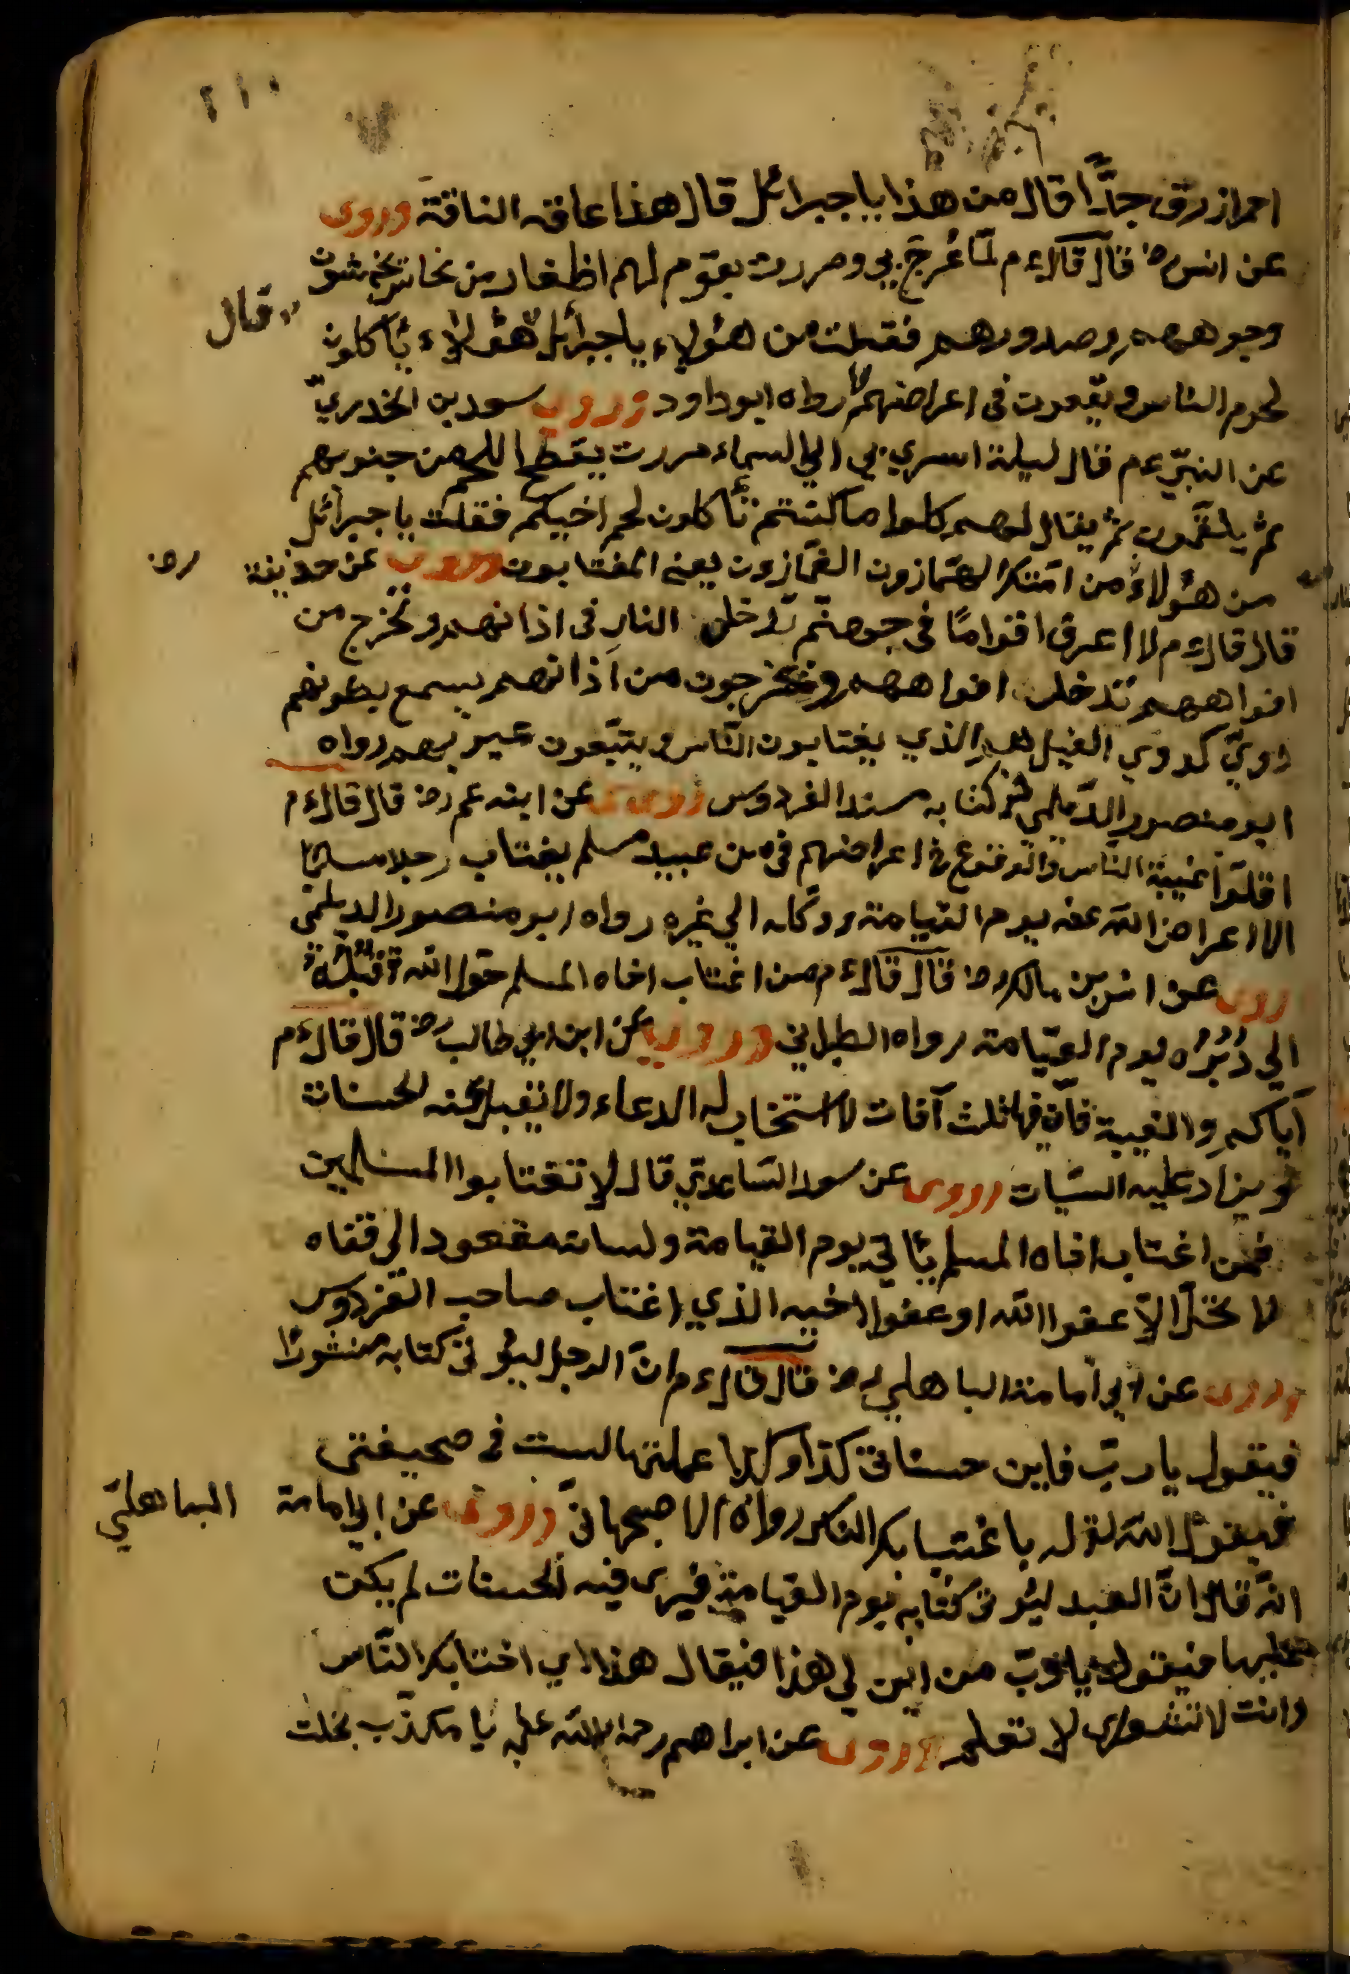 ٢١٠
احمر ازرق جدّا قال من هذا يا جبرائل قال هذا عاقر الناقة وروى
عن انس رض قال قال ءم لمّا عُرج بي ومررت بقوم لهم اظفار من نحاس يخمشون
وجوههم وصدورهم فقلت من هؤلاء يا جبرائل هؤلاء يأكلون
قال
لحوم الناس ويقعون في اعراضهم رواه ابو داود وروى سعد بن الخدريّ
عن النبيّ عم قال ليلة اسري بي الي السماء مررت يقطع اللحم من جنوبهم
ثم يلقمون ثم يقال لهم كلوا ما كنتم تأكلون لحم اخيكم فقلت يا جبرائل
من هؤلاء من امتك الهمّازون الغمّازون يعني المغتابون وروى عن حذيفة
رض
قال قال ءم لا اعرف اقوامًا في جهنّم تدخل النار في اذانهم وتخرج من
افواههم تدخل افواههم وتخرجون من اذانهم يسمع بطونهم
دويّ كدوي الغيل هم الذي يغتابون النّاس ويتبّعون عيوبهم رواه
ابو منصور الدّيلمي في كتابه مسند الفردوس وروى عن ابنه عم رض قال قال ءم
اقلّوا غيبة النّاس والوقوع في اعراضهم في من عبيد مسلم يغتاب رجلا مسلمًا
الا اعراض اللّه عنه يوم القيامة ووكله الي غيره رواه ابو منصور الديلمي
روى عن انس بن مالك رض قال قال ءم من اغتاب اخاه المسلم حوّل اللّه قُبُله
الي دُبُره يوم القيامة رواه الطبراني وروى عن ابن ابي طالب رض قال قال ءم
ايّاكم والغيبة فانّ فيها ثلث آفات لا استخاب له الدعاء ولا تقبل منه لحسنات
ويزاد عليه السّيات وروى عن سعد السّاعديّ قال لا تغتابوا المسلمين
فمن اغتاب اخاه المسلم يأتي يوم القيامة ولسانه مقعود الي قفاه
لا يخلّ الّا عفوا اللّه او عفوا اخيه الذي اغتاب صاحب الفردوس
وروى عن ابي امامة الباهلي رض قال قال ءم انّ الرجل ليؤتى كتابه منشورًا
فيقول يا ربّ فاين حسناتي كذا وكذا عملتها ليست في صحيفتي
فيقول اللّه لقوله باغتيابك الناس رواه الاصبهانيّ وروى عن ابي امامة
الباهليّ
انّه قال انّ العبد ليؤتى كتابه يوم القيامة فيرى فيه لحسنات لم يكن
عملها فيقول يا ربّ من اين لي هذا فيقال هذا اي اختابك النّاس
وانت لا تشعر اي لا تعلم وروى عن ابراهيم رحمة اللّه عليه يا مكذّب بخلت